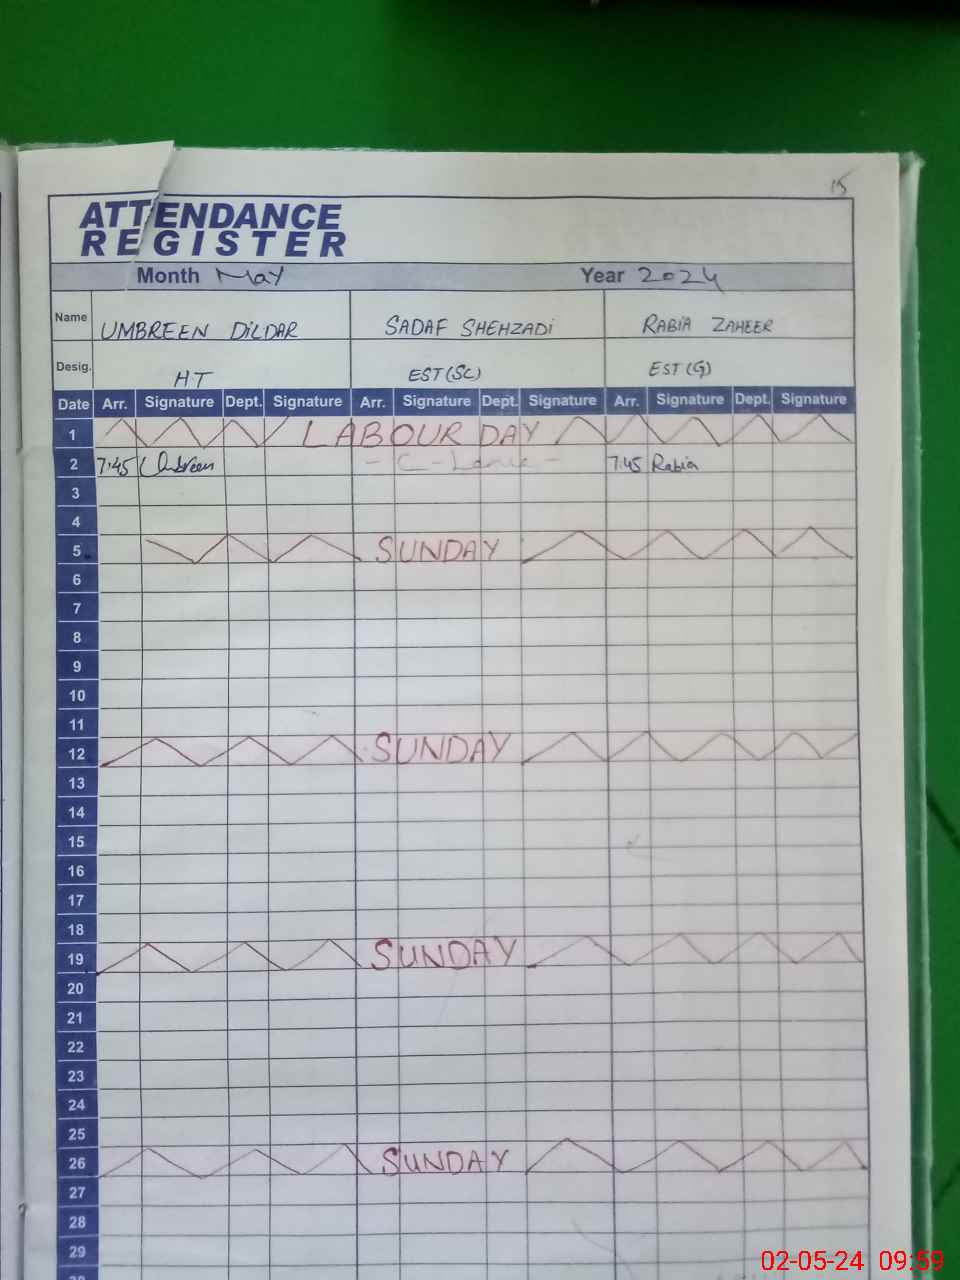 15
ATTENDANCE
REGISTER
Month May Year 2024
Name UMBREEN DILDAR SADAF SHEHZADI RABIA ZAHEER
Desig. HT EST (SC) EST (G)
Date Arr. Signature Dept. Signature Arr. Signature Dept. Signature Arr. Signature Dept. Signature
1 LABOUR DAY
2 7:45 Umbreen - C - - 7:45 Rabia
3
4
5 SUNDAY
6
7
8
9
10
11
12 SUNDAY
13
14
15
16
17
18
19 SUNDAY
20
21
22
23
24
25
26 SUNDAY
27
28
29
02-05-24 09:59